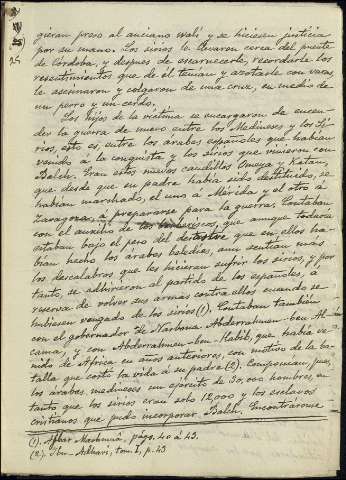 25
gieran preso al anciano walí y se hiciesen justicia
por su mano. Los sirios le llevaron cerca del puente
de Córdoba, y despues de escarnecerle, recordarle los
resentimientos que de él tenian y azotarle con varas,
le asesinaron y colgaron de una cruz, en medio de
un perro y un cerdo.
Los hijos de la víctima se encargaron de encen-
der la guerra de nuevo entre los Medineses y los Si-
rios, esto es, entre los arabes españoles que habian
venido á la conquista y los sirios que vinieron con
Balch. Eran estos nuevos caudillos Omeya y Katan,
que desde que su padre habia sido destituido, se
habian marchado, el uno á Mérida y el otro á
Zaragoza, á prepararse para la guerra. Contaban
con el auxilio de los berberiscos, que aunque todavia
estaban bajo el peso del desastre que en ellos ha-
bian hecho los arabes beledies, aun sentian más
los descalabros que les hicieran sufrir los sirios, y por
tanto, se adhirieron al partido de los españoles, á
reserva de volver sus armas contra ellos cuando se
hubiesen vengado de los sirios (1). Contaban tambien
con el gobernador de Narbona Abderrahmen-ben Al-
cama, y con Abderrahmen-ben-Habib, que habia ve-
nido de Africa en años anteriores, con motivo de la ba-
talla que costó la vida á su padre (2). Componian, pues,
los árabes medineses un ejército de 30,000 hombres, en
tanto que los sirios eran solo 12,000 y los esclavos
cristianos que pudo incorporar Balch. Encontráronse
(1). Ajbar Machmuá, págs. 40 á 43.
(2). Ibn-Adhari, tom. I, p. 43